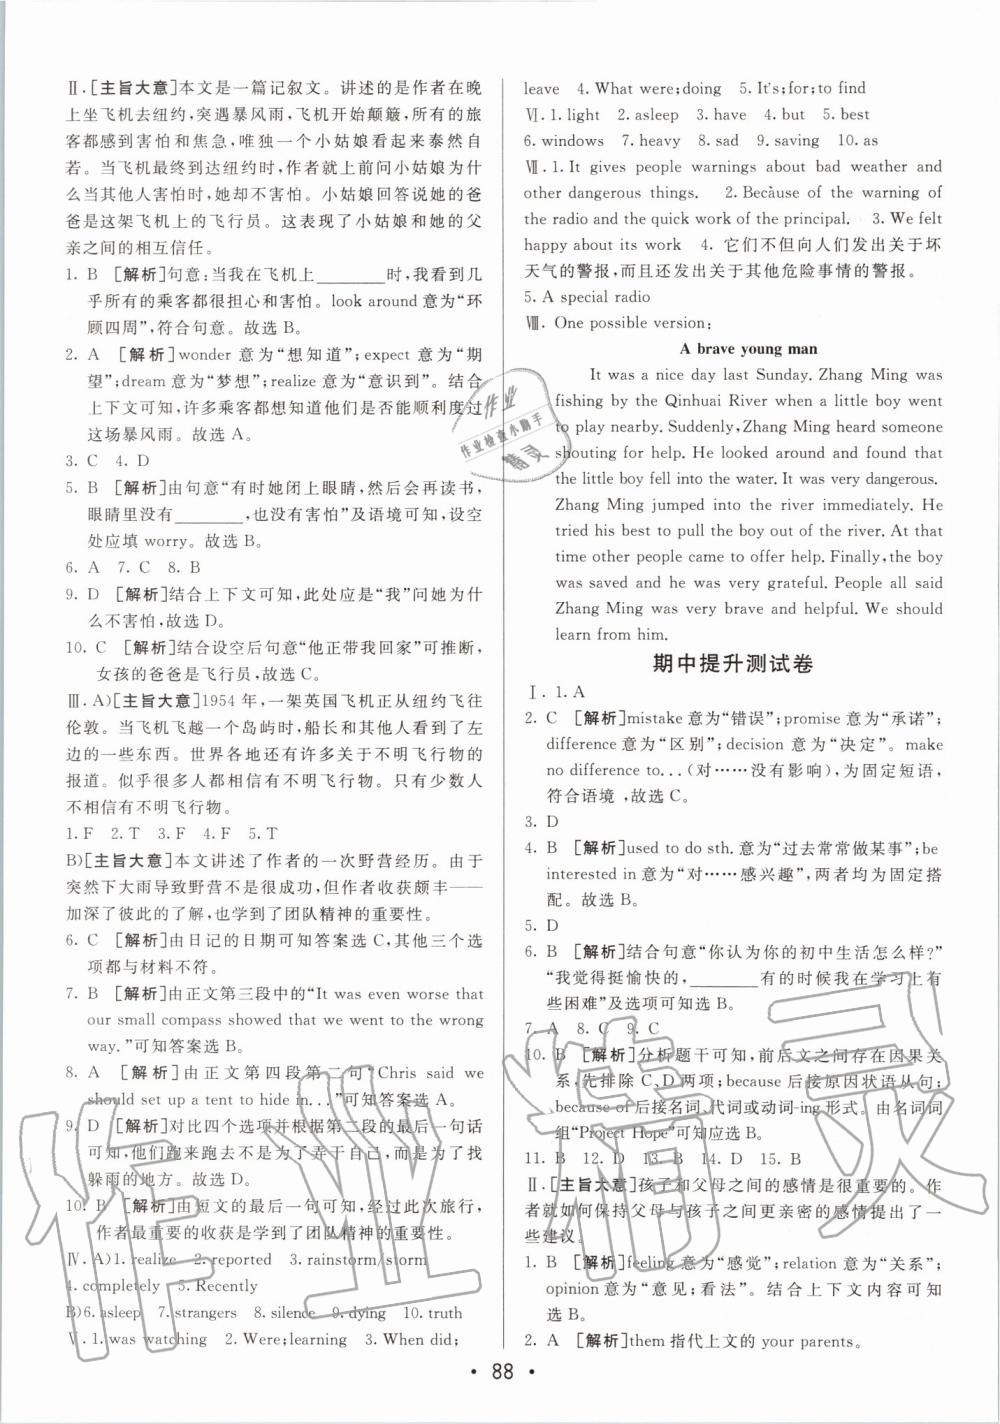 Ⅱ. [主旨大意]本文是一篇记叙文。讲述的是作者在晚
上坐飞机去纽约,突遇暴风雨,飞机开始颠簸,所有的旅
客都感到害怕和焦急,唯独一个小姑娘看起来泰然自
若。当飞机最终到达纽约时,作者就上前问小姑娘为什
么当其他人害怕时,她却不害怕。小姑娘回答说她的爸
爸是这架飞机上的飞行员。这表现了小姑娘和她的父
亲之间的相互信任。
1. B [解析]句意:当我在飞机上________时,我看到几
乎所有的乘客都很担心和害怕。look around 意为“环
顾四周”,符合句意。故选 B。
2. A [解析]wonder 意为“想知道”;expect 意为“期
望”;dream 意为“梦想”;realize 意为“意识到”。结合
上下文可知,许多乘客都想知道他们是否能顺利度过
这场暴风雨。故选 A。
3. C 4. D
5. B [解析]由句意“有时她闭上眼睛,然后会再读书,
眼睛里没有________,也没有害怕”及语境可知,设空
处应填 worry。故选 B。
6. A 7. C 8. B
9. D [解析]结合上下文可知,此处应是“我”问她为什
么不害怕,故选 D。
10. C [解析]结合设空后句意“他正带我回家”可推断,
女孩的爸爸是飞行员。故选 C。
Ⅲ. A)[主旨大意]1954 年,一架英国飞机正从纽约飞往
伦敦。当飞机飞越一个岛屿时,船长和其他人看到了左
边的一些东西。世界各地还有许多关于不明飞行物的
报道。似乎很多人都相信有不明飞行物。只有少数人
不相信有不明飞行物。
1. F 2. T 3. F 4. F 5. T
B)[主旨大意]本文讲述了作者的一次野营经历。由于
突然下大雨导致野营不是很成功,但作者收获颇丰——
加深了彼此的了解,也学到了团队精神的重要性。
6. C [解析]由日记的日期可知答案选 C,其他三个选
项都与材料不符。
7. B [解析]由正文第三段中的“It was even worse that
our small compass showed that we went to the wrong
way.”可知答案选 B。
8. A [解析]由正文第四段第二句“Chris said we
should set up a tent to hide in...”可知答案选 A。
9. D [解析]对比四个选项并根据第二段的最后一句话
可知,他们跑来跑去不是为了弄干自己,而是为了找
躲雨的地方。故选 D。
10. B [解析]由短文的最后一句可知,经过此次旅行,
作者最重要的收获是学到了团队精神的重要性。
Ⅳ. A)1. realize 2. reported 3. rainstorm/storm
4. completely 5. Recently
B)6. asleep 7. strangers 8. silence 9. dying 10. truth
Ⅴ. 1. was watching 2. Were;learning 3. When did;
leave 4. What were;doing 5. It's;for;to find
Ⅵ. 1. light 2. asleep 3. have 4. but 5. best
6. windows 7. heavy 8. sad 9. saving 10. as
Ⅶ. 1. It gives people warnings about bad weather and
other dangerous things. 2. Because of the warning of
the radio and the quick work of the principal. 3. We felt
happy about its work 4. 它们不但向人们发出关于坏
天气的警报,而且还发出关于其他危险事情的警报。
5. A special radio
Ⅷ. One possible version:
A brave young man
It was a nice day last Sunday. Zhang Ming was
fishing by the Qinhuai River when a little boy went
to play nearby. Suddenly, Zhang Ming heard someone
shouting for help. He looked around and found that
the little boy fell into the water. It was very dangerous.
Zhang Ming jumped into the river immediately. He
tried his best to pull the boy out of the river. At that
time other people came to offer help. Finally, the boy
was saved and he was very grateful. People all said
Zhang Ming was very brave and helpful. We should
learn from him.
期中提升测试卷
Ⅰ. 1. A
2. C [解析]mistake 意为“错误”;promise 意为“承诺”;
difference 意为“区别”;decision 意为“决定”。make
no difference to...(对……没有影响),为固定短语,
符合语境,故选 C。
3. D
4. B [解析]used to do sth. 意为“过去常常做某事”;be
interested in 意为“对……感兴趣”,两者均为固定搭
配。故选 B。
5. D
6. B [解析]结合句意“你认为你的初中生活怎么样?”
“我觉得挺愉快的,________有的时候我在学习上有
些困难”及选项可知选 B。
7. A 8. C 9. C
10. B [解析]分析题干可知,前后文之间存在因果关
系,先排除 C、D 两项;because 后接原因状语从句;
because of 后接名词、代词或动词-ing 形式。由名词词
组“Project Hope”可知应选 B。
11. B 12. D 13. B 14. D 15. B
Ⅱ. [主旨大意]孩子和父母之间的感情是很重要的。作
者就如何保持父母与孩子之间更亲密的感情提出了一
些建议。
1. B [解析]feeling 意为“感觉”;relation 意为“关系”;
opinion 意为“意见;看法”。结合上下文内容可知
选 B。
2. A [解析]them 指代上文的 your parents。
• 88 •
作业
作业检查小助手
精灵
作业精灵